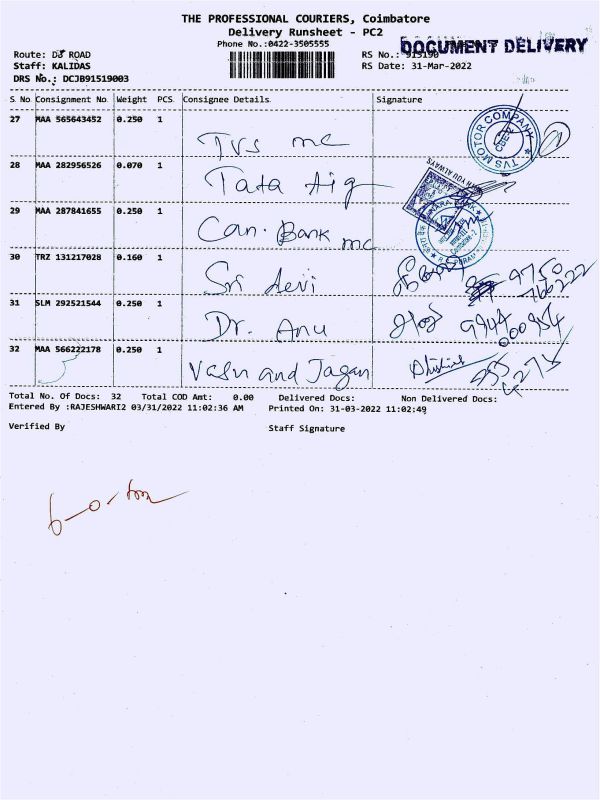 THE PROFESSIONAL COURIERS, Coimbatore
Delivery Runsheet - PC2
Phone No.:0422-3505555
DOCUMENT DELIVERY
Route: DJ ROAD
RS No.: 915190
Staff: KALIDAS
RS Date: 31-Mar-2022
DRS No.: DCJB91519003
S No Consignment No Weight PCS Consignee Details Signature
27 MAA 565643452 0.250 1
Tvs mc
TVS MOTOR COMPANY
28 MAA 282956526 0.070 1
Tata Aig
WITH YOU ALWAYS
29 MAA 287841655 0.250 1
Can. Bank mc
30 TRZ 131217028 0.160 1
Sri devi
9750
766222
31 SLM 292521544 0.250 1
Dr. Anu
9944
000954
32 MAA 566222178 0.250 1
Vasu and Jagan
Total No. Of Docs: 32 Total COD Amt: 0.00 Delivered Docs: Non Delivered Docs:
Entered By :RAJESHWARI2 03/31/2022 11:02:36 AM Printed On: 31-03-2022 11:02:49
Verified By Staff Signature